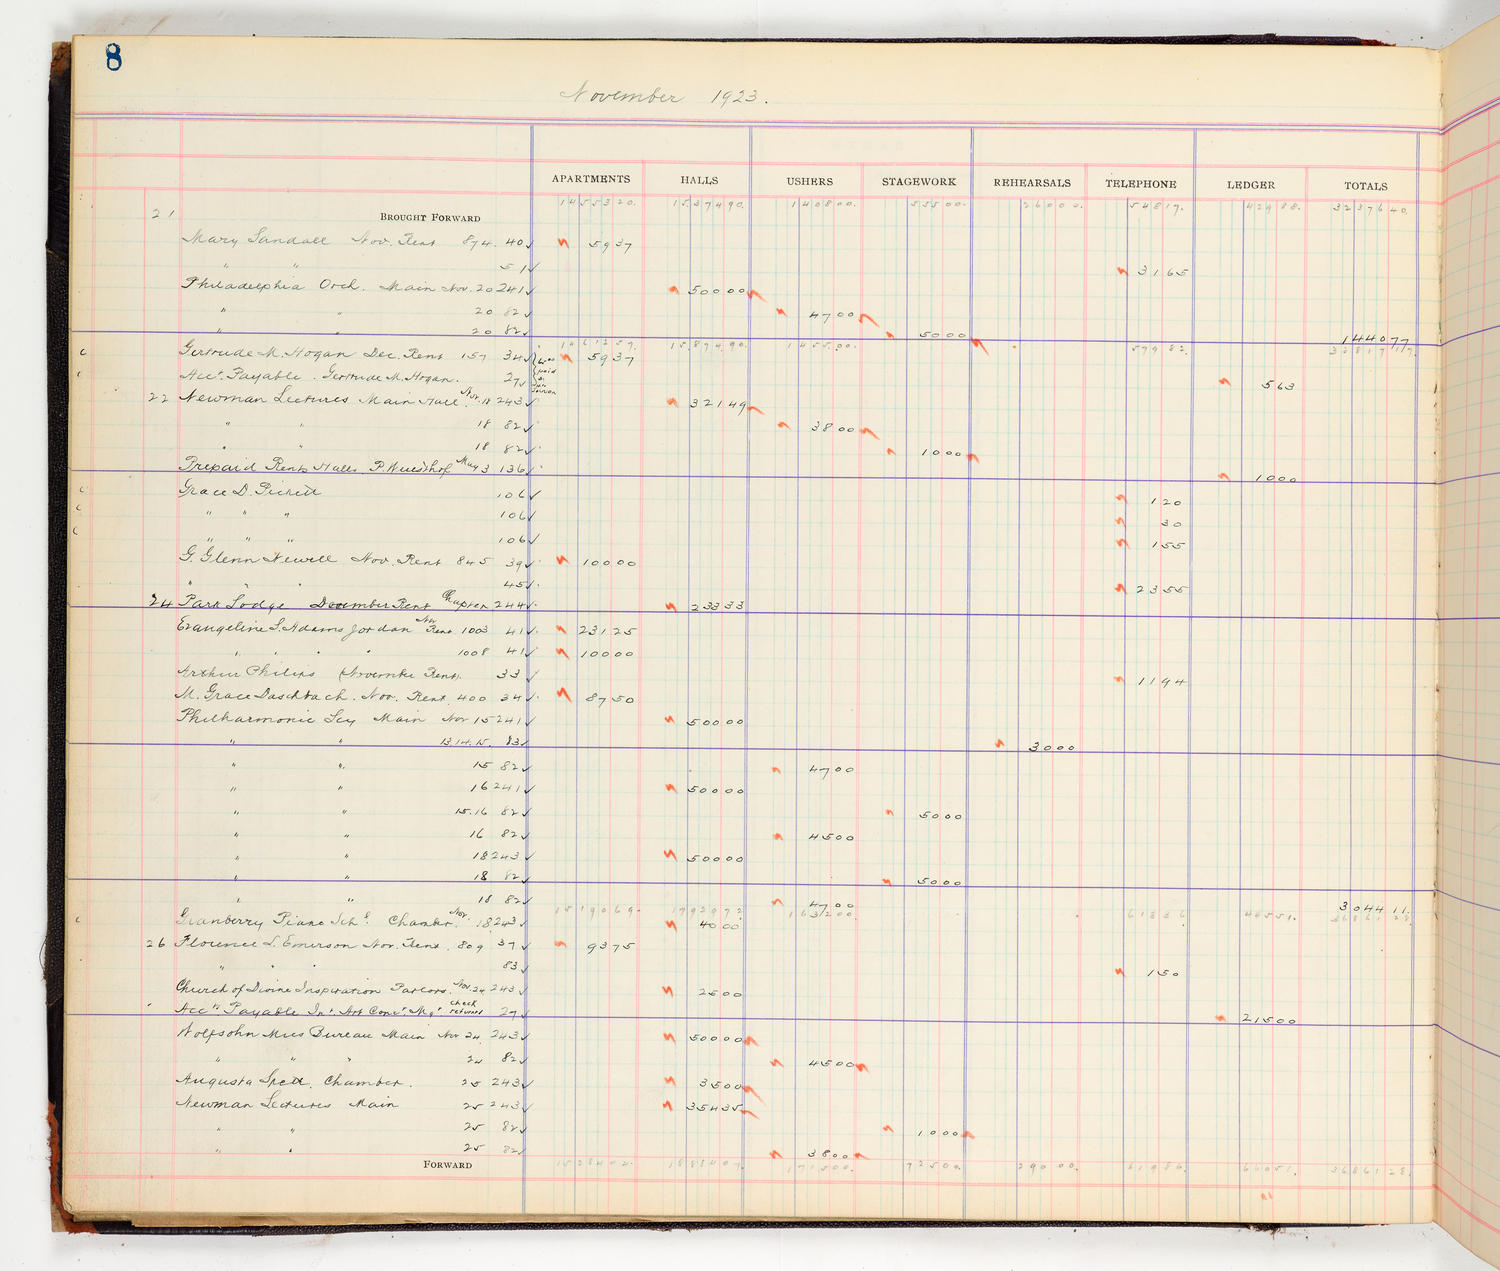 8
November 1923.
APARTMENTS HALLS USHERS STAGEWORK REHEARSALS TELEPHONE LEDGER TOTALS
21 BROUGHT FORWARD 1455320. 1537490. 140800. 55500. 26000. 54817. 42988. 3237640.
Mary Landall Nov. Rent 874. 40 ✓ 5937
" " 51 ✓ 3165
Philadelphia Orch. Main Nov. 20 241 ✓ 50000
" " 20 82 ✓ 4700
" " 20 82 ✓ 5000 144077
Gertrude M. Hogan Dec. Rent 157 34 ✓ 5937
Acct. Payable. Gertrude M. Hogan. 27 ✓ 563
22 Newman Lectures Main Hall Nov. 18 243 ✓ 32149
" " 18 82 ✓ 3800
" " 18 82 ✓ 1000
Prepaid Rents Halls P. Wuesthof May 3 136 ✓ 1000
Grace D. Pickett 106 ✓ 120
" " " 106 ✓ 30
" " " 106 ✓ 155
G. Glenn Newell Nov. Rent 845 39 ✓ 10000
" " " 45 ✓ 2355
24 Park Lodge December Rent Chapter 244 ✓ 23333
Evangeline S. Adams Jordan Nov Rent 1003 41 ✓ 23125
" " " " 1008 41 ✓ 10000
Arthur Philips (November Rent). 33 ✓ 1194
M. Grace Daschbach. Nov. Rent. 400 34 ✓ 8750
Philharmonic Scy Main Nov 15 241 ✓ 50000
" " 13.14.15. 83 ✓ 3000
" " 15 82 ✓ 4700
" " 16 241 ✓ 50000
" " 15.16 82 ✓ 5000
" " 16 82 ✓ 4500
" " 18 243 ✓ 50000
" " 18 82 ✓ 5000
" " 18 82 ✓ 4700 304411
Granberry Piano Schl. Chamber. Nov. 18 243 ✓ 4000
26 Florence L. Emerson Nov. Rent. 809 37 ✓ 9375
" " " 83 ✓ 150
Church of Divine Inspiration Parlors. Nov. 24 243 ✓ 2500
Accts Payable Int. Art Conct. Mgt check returned 27 ✓ 21500
Wolfsohn Mus Bureau Main Nov 24. 243 ✓ 50000
" " " 24 82 ✓ 4500
Augusta Chamber. 25 243 ✓ 3500
Newman Lectures Main 25 243 ✓ 35435
" " 25 82 ✓ 1000
" " 25 82 ✓ 3800
FORWARD 1528402. 1888407. 171500. 72500. 29000. 61986. 66051. 3686128.